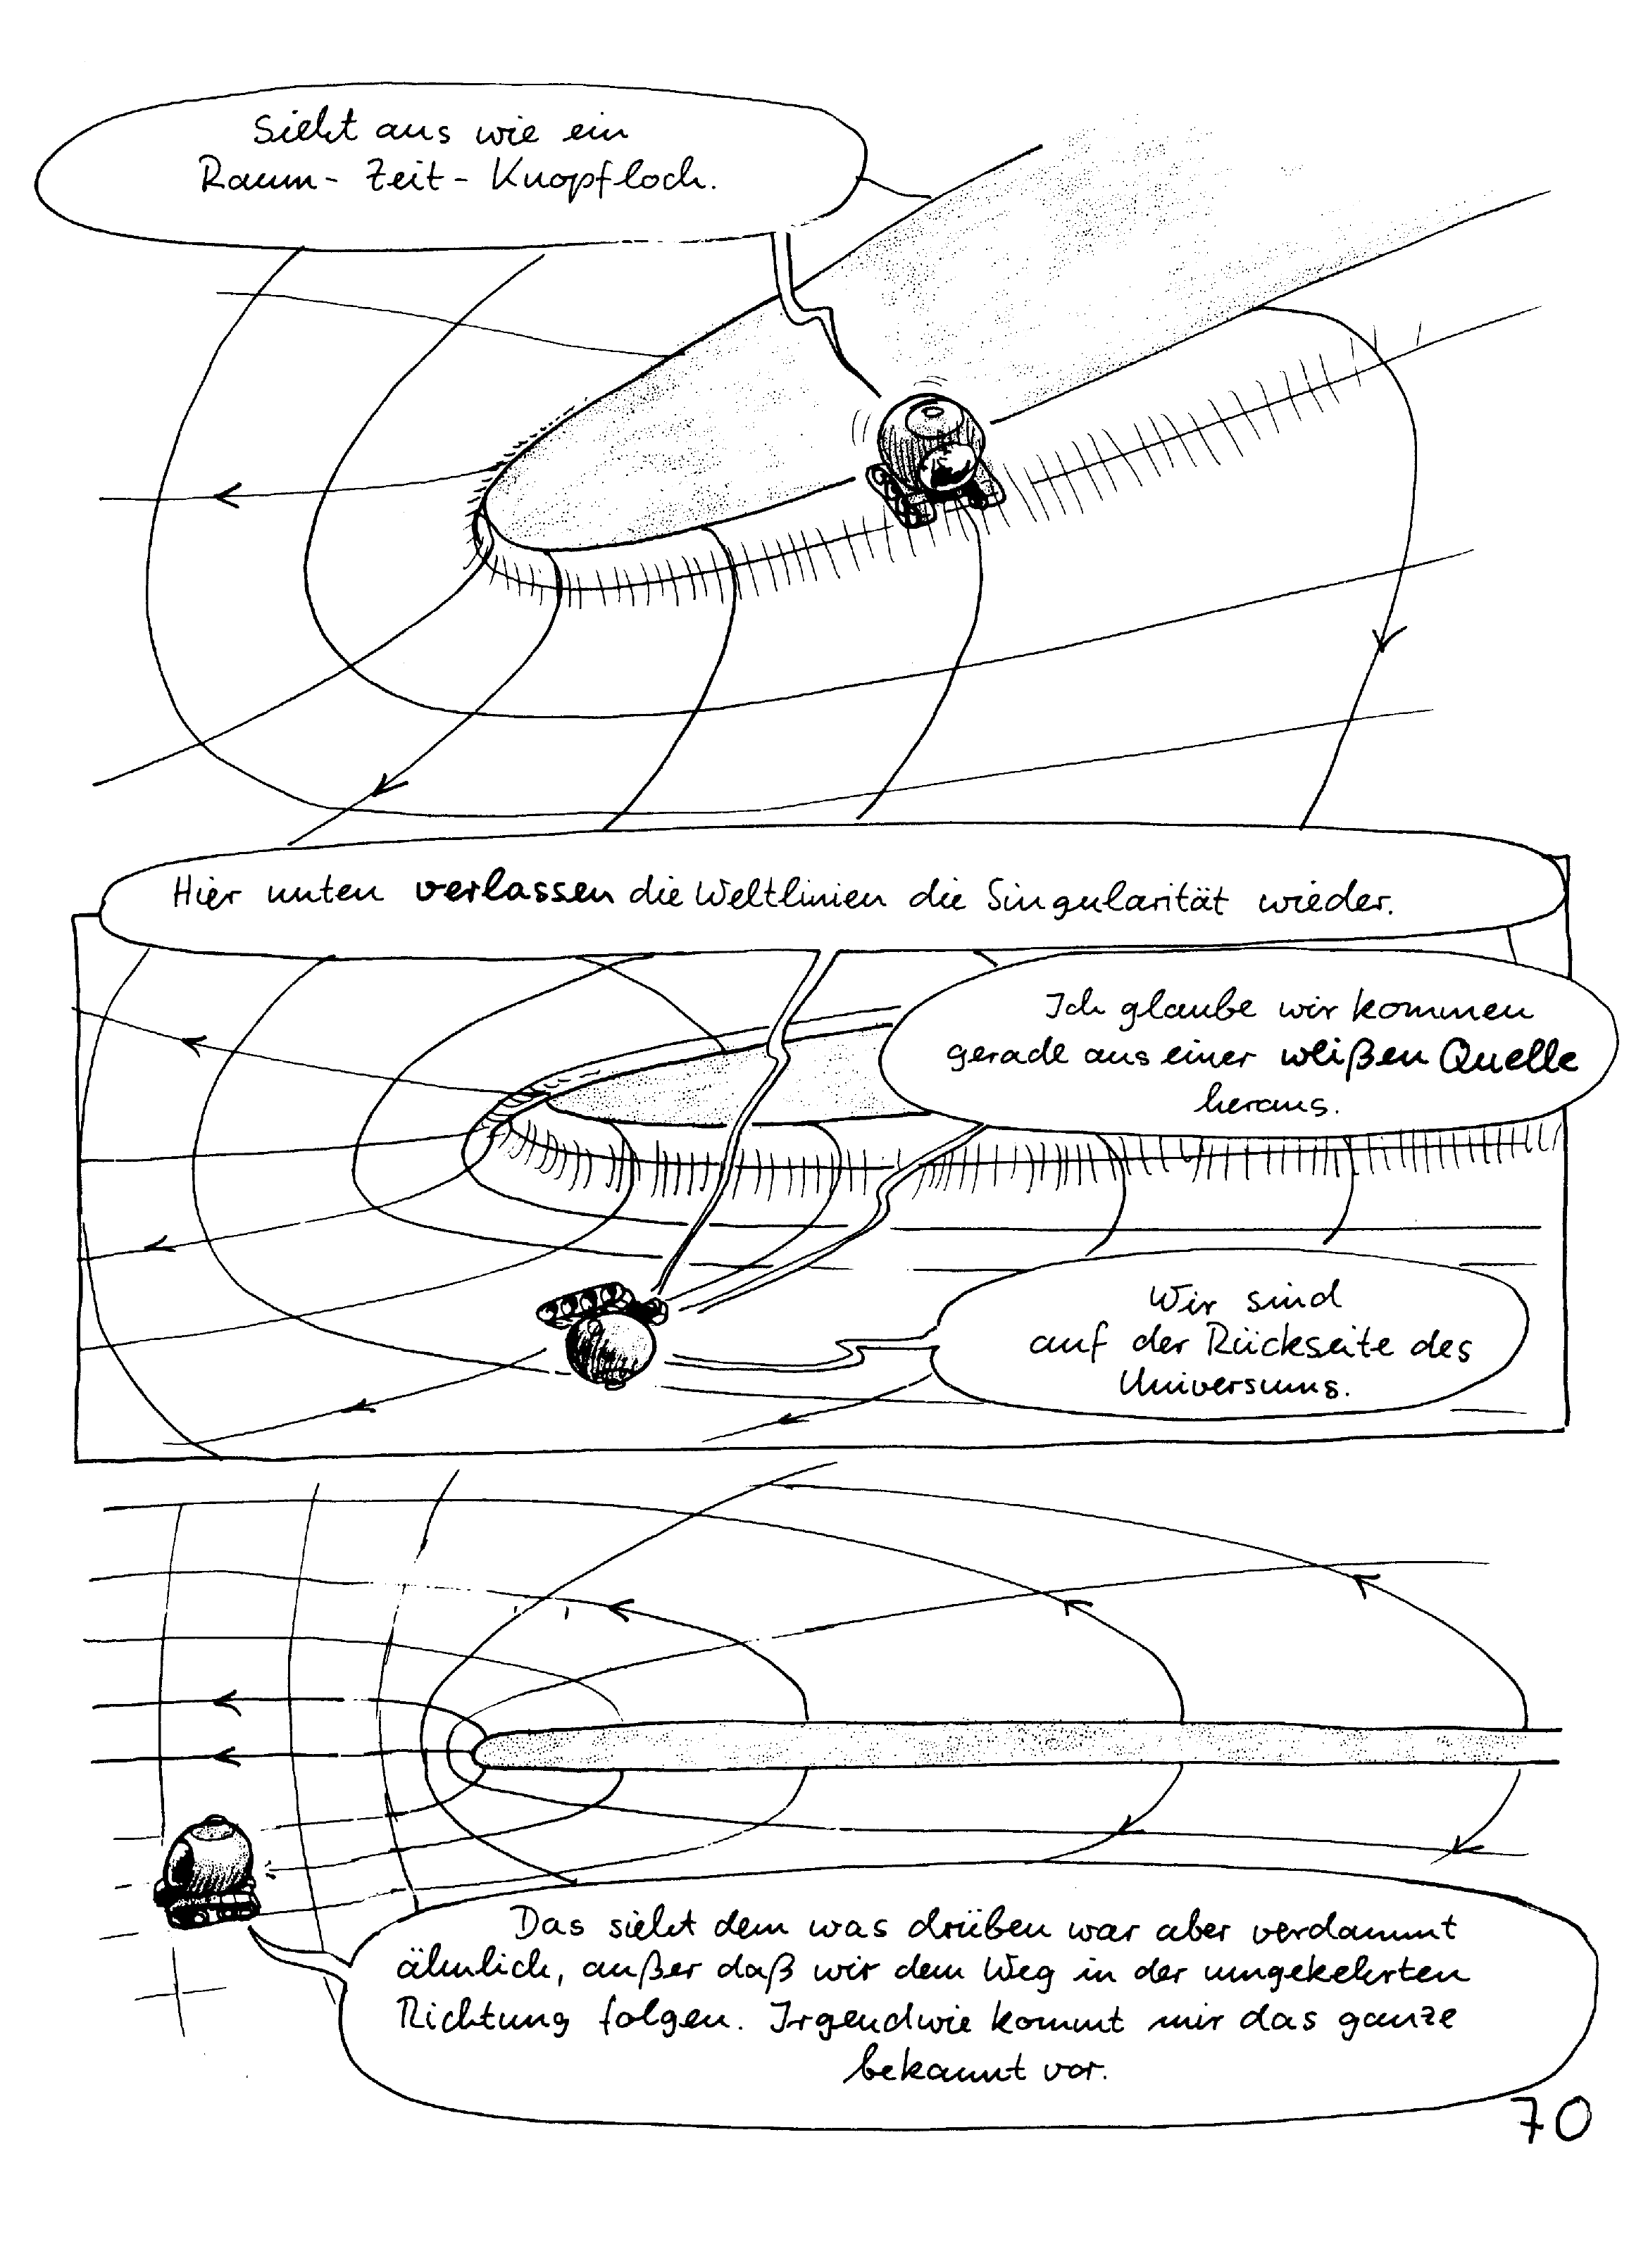 Sieht aus wie ein
Raum-Zeit-Knopfloch.
Hier unten verlassen die Weltlinien die Singularität wieder.
Ich glaube wir kommen
gerade aus einer weißen Quelle
heraus.
Wir sind
auf der Rückseite des
Universums.
Das sieht dem was drüben war aber verdammt
ähnlich, außer daß wir dem Weg in der umgekehrten
Richtung folgen. Irgendwie kommt mir das ganze
bekannt vor.
70